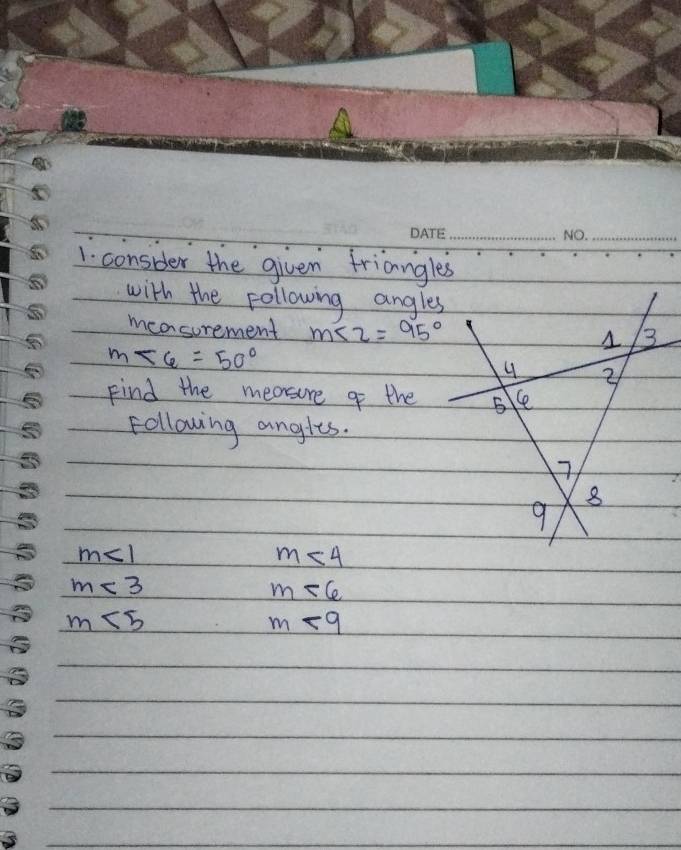 DATE
NO.
1. consider the given triangles
with the following angles
measurement m<2 = 95°
m<6 = 50°
Find the measure of the
Following angles.
1 3
2
4
5 6
7
8
9
m<1 m<4
m<3 m<6
m<5 m<9